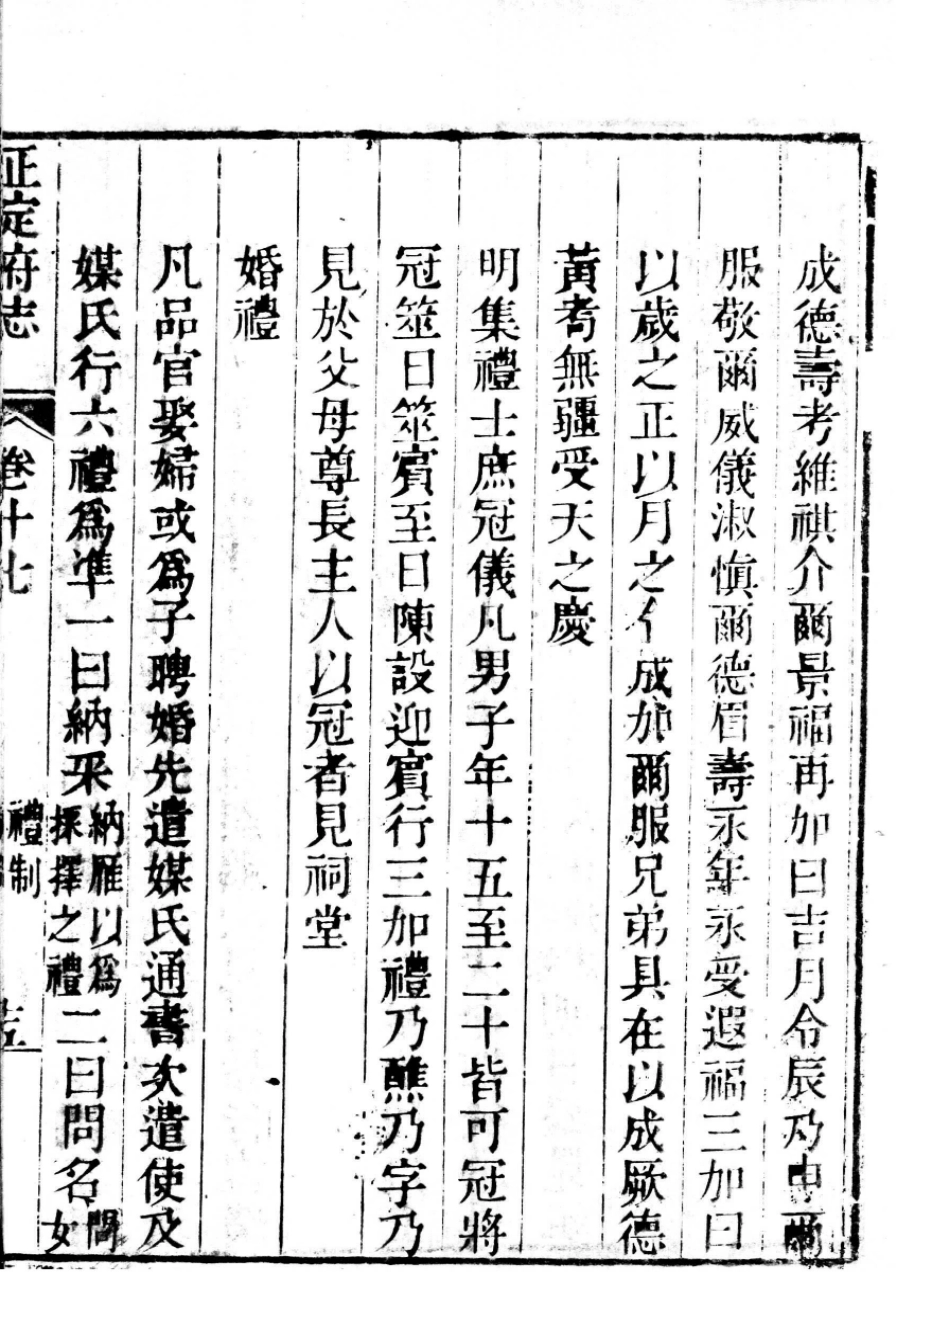 成德壽考維祺介爾景福再加曰吉月令辰乃申爾
服敬爾威儀淑慎爾德眉壽永年永受遐福三加曰
以歲之正以月之令咸加爾服兄弟具在以成厥德
黃耉無疆受天之慶
明集禮士庶冠儀凡男子年十五至二十皆可冠將
冠筮日筮賓至日陳設迎賓行三加禮乃醮乃字乃
見於父母尊長主人以冠者見祠堂
婚禮
凡品官娶婦或爲子聘婚先遣媒氏通書次遣使及
媒氏行六禮爲準一曰納采納雁以爲採擇之禮二曰問名問女
正定府志 卷十七 禮制